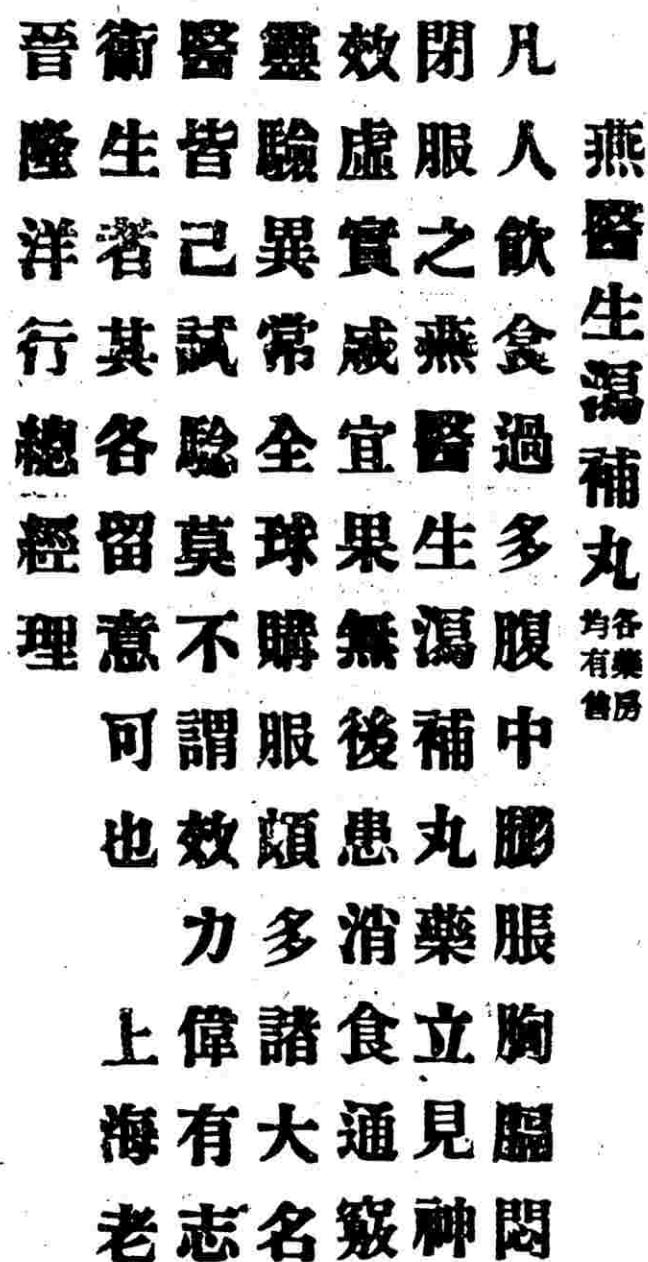 燕醫生瀉補丸
各藥房
均有售
凡人飲食過多腹中膨脹胸膈悶
閉服之燕醫生瀉補丸藥立見神
效虛實咸宜果無後患消食通竅
靈驗異常全球購服頗多諸大名
醫皆己試騐莫不謂效力偉有志
衛生者其各留意可也 上海老
晉隆洋行總經理